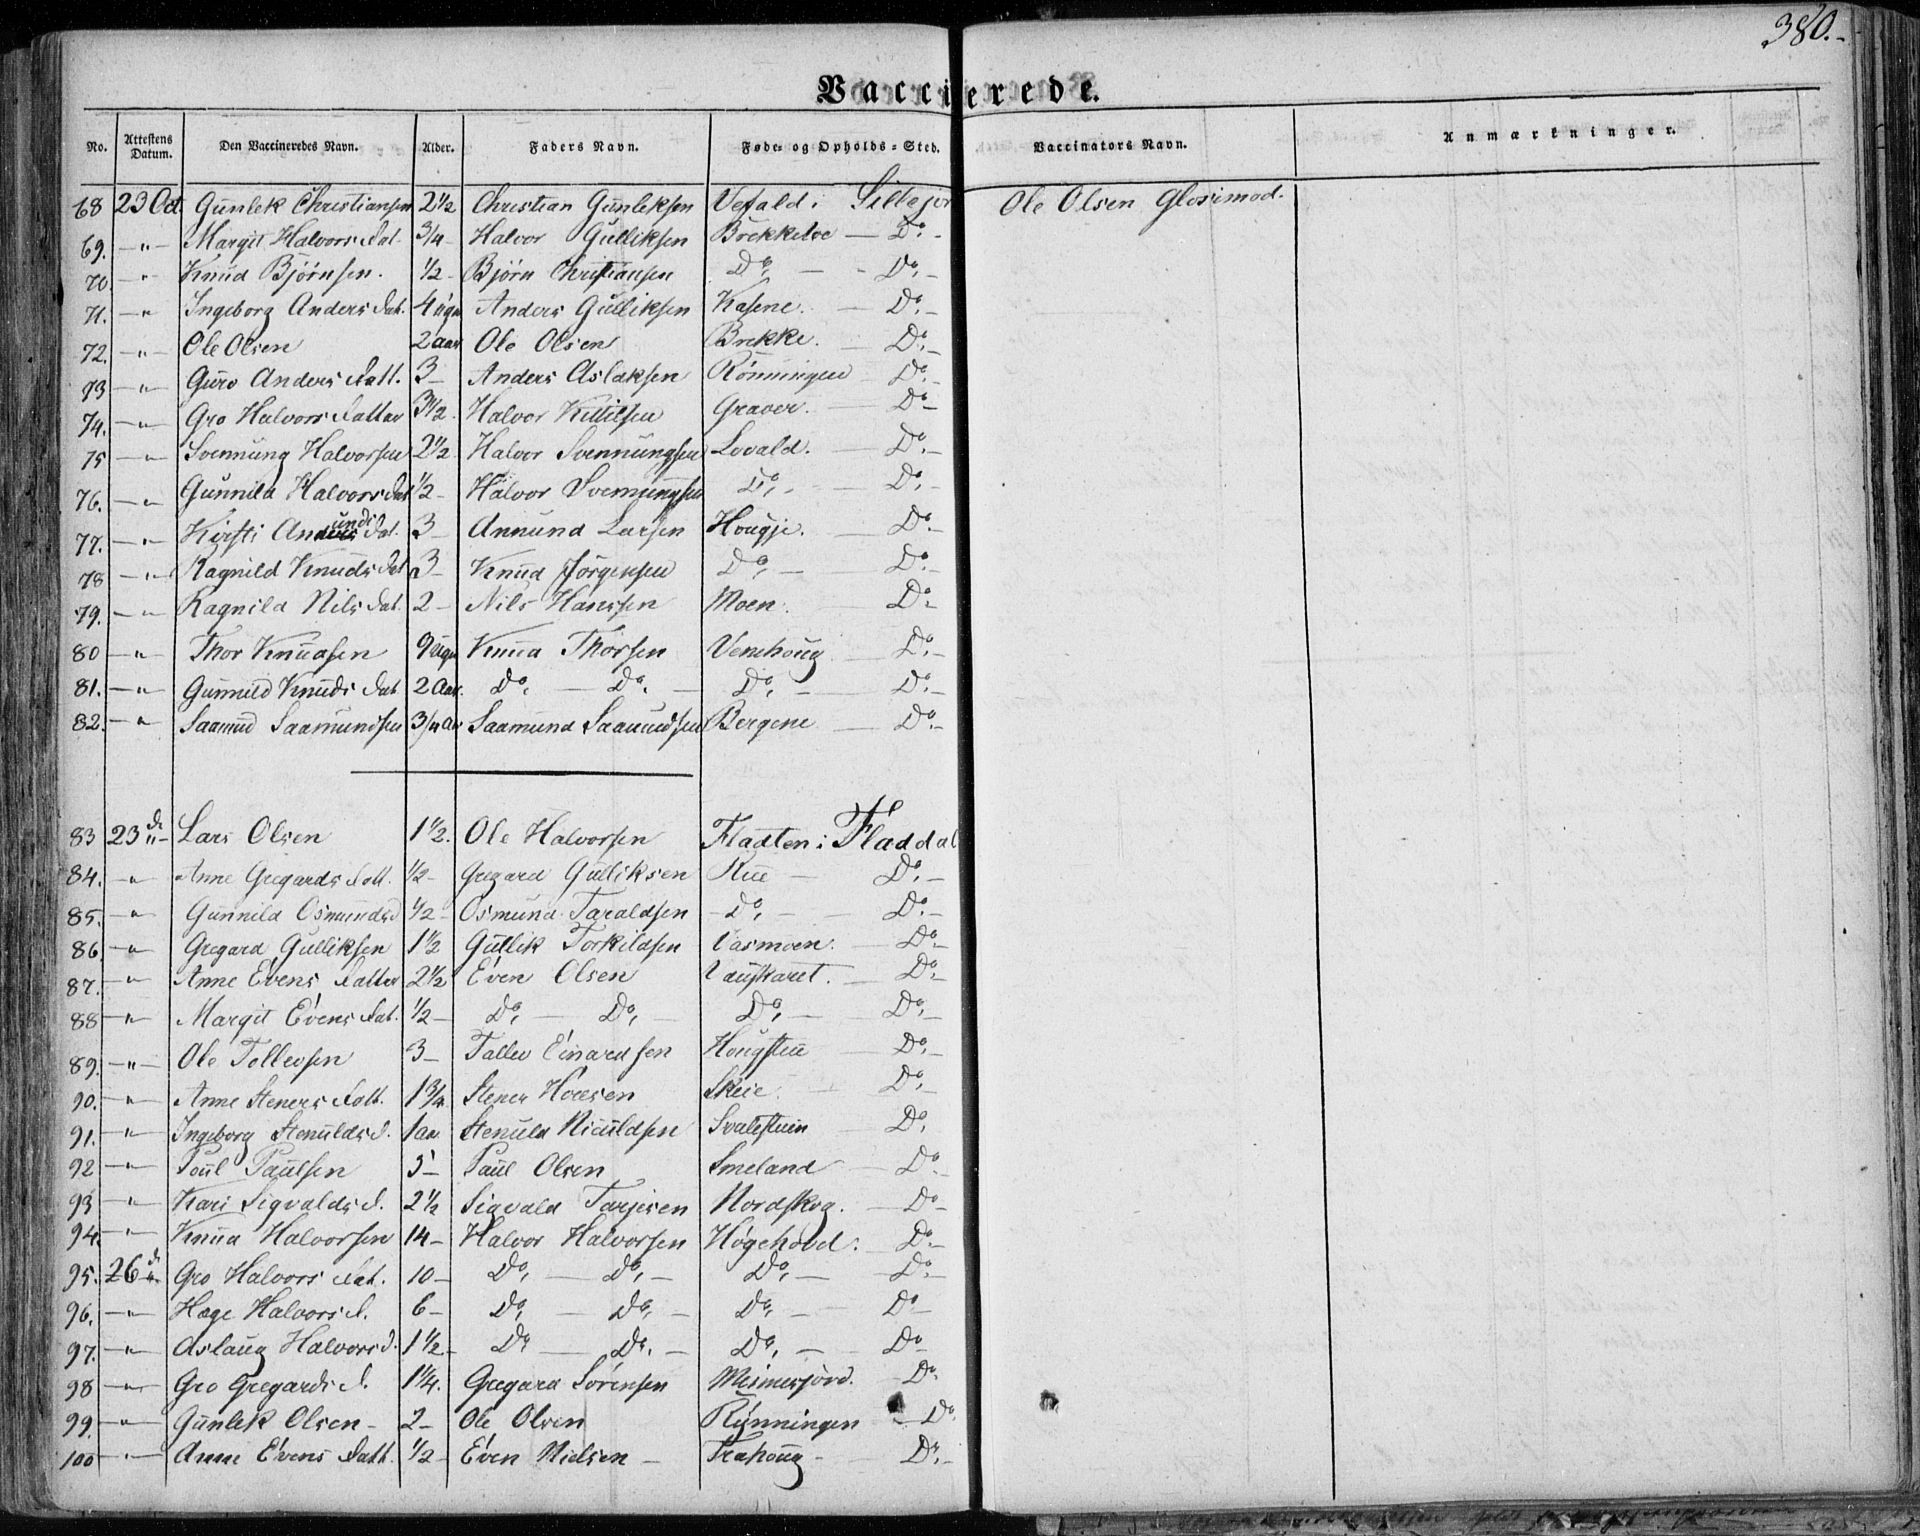 380.
Vaccinerede.
No. Attestens Datum. Den Vaccineredes Navn. Alder. Faders Navn. Føde- og Opholds-Sted. Vaccinators Navn. Anmærkninger.
68 23 Oct Gunlek Christiansen 2½ Christian Gunleksen Vefald i Ole Olsen Glosimod.
69. –"– Margit Halvors Dat. ¾ Halvor Gulliksen – Do. –
70. " Knud Bjørnsen. ½ – Bjørn Christiansen Do. – – Do. –
71. –" Ingeborg Anders Dat. 4 Anders Gulliksen Kasene. – Do. –
72. –"– Ole Olsen 2 aar Ole Olsen Brekke. – Do. –
73 –" Guro Anders Datt. 3 – Anders Aslaksen Rönningen – Do. –
74. –"– Gro Halvors Datter 3½ Halvor Kittilsen Graver. – Do –
75 –"– Svennung Halvorsen 2½ Halvor Svennungsen Lovald. – Do. –
76. –"– Gunnild Halvors Dat ½ – Halvor Svennungsen Do, – Do. –
77. –"– Kirsti Anunds Dat. 3 – Annund Larsen Hougje. – Do –
78 –"– Ragnild Knuds Dat 3 – Knud Jörgensen Do, – Do. –
79. –"– Ragnild Nils Dat. 2 – Nils Hansen Moen. Do –
80 –"– Thor Knudsen 9 Knud Thorsen Venehoug – Do. –
81. –"– Gunnild Knuds Dat 2 Aar. Do. – Do. – Do. – Do. –
82. –"– Saamund Saamundsen ¾ Aar Saamund Saamundsen Bergene – Do. –
83 23 d "– Lars Olsen 1½. Ole Halvorsen Fladten i Fladdal
84. –"– Anne Gregards Datt. ½ – Gregard Gulliksen Rue – Do. –
85. –"– Gunnild Osmunds d ½ – Osmund Taraldsen – Do, – Do. –
86. –"– Gregard Gulliksen 1½ Gullik Torkildsen Vasmoen. – Do –
87. –"– Anne Evens Datter 2½ Even Olsen – Do. –
88 –"– Margit Evens Dat. ½ – Do. – Do. – Do. – Do. –
89. –"– Ole Tollevsen 3 – Tallev Einardsen – Do. –
90. –"– Anne Steners Datt. 1¾ Stener Skeie. – Do. –
91. –"– Ingeborg Stenulds d. 1 aar Stenuld Niculdsen – Do.
92 –"– Poul Paulsen 5 – Paul Olsen Smeland – Do. –
93 –"– Kari Sigvalds d. 2½ Sigvald Tarjesen Nordskog. – Do –
94. –"– Knud Halvorsen 14 – Halvor Halvorsen Høgehovd. Do –
95. 26 d "– Gro Halvors Dat. 10 – Do, – Do, – Do, – Do. –
96. –"– Hæge Halvors d. 6 – Do, – Do, – Do, – Do –
97. –"– Aslaug Halvors d. 1½ – Do – Do. – Do, – Do
98 –"– Gro Gregards d. 1¼. Gregard Sørensen – Do.
99. –"– Gunlek Olsen – 2 – Ole Olsen Rynningen – Do.
100 –"– Anne Evens Datt. ½ – Even Nielsen – Trahoug – Do. –